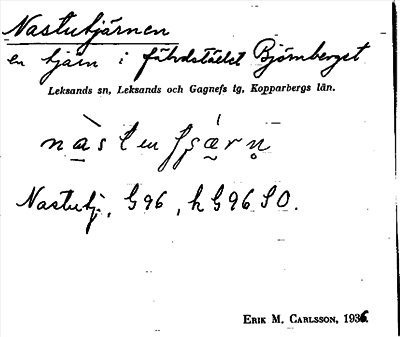 Nastutjärnen
en tjärn i fäbodstället Björnberget
Leksands sn, Leksands och Gagnefs tg, Kopparbergs län.
Nastutj. G 96, h G 96 SO.
ERIK M. CARLSSON, 1936.